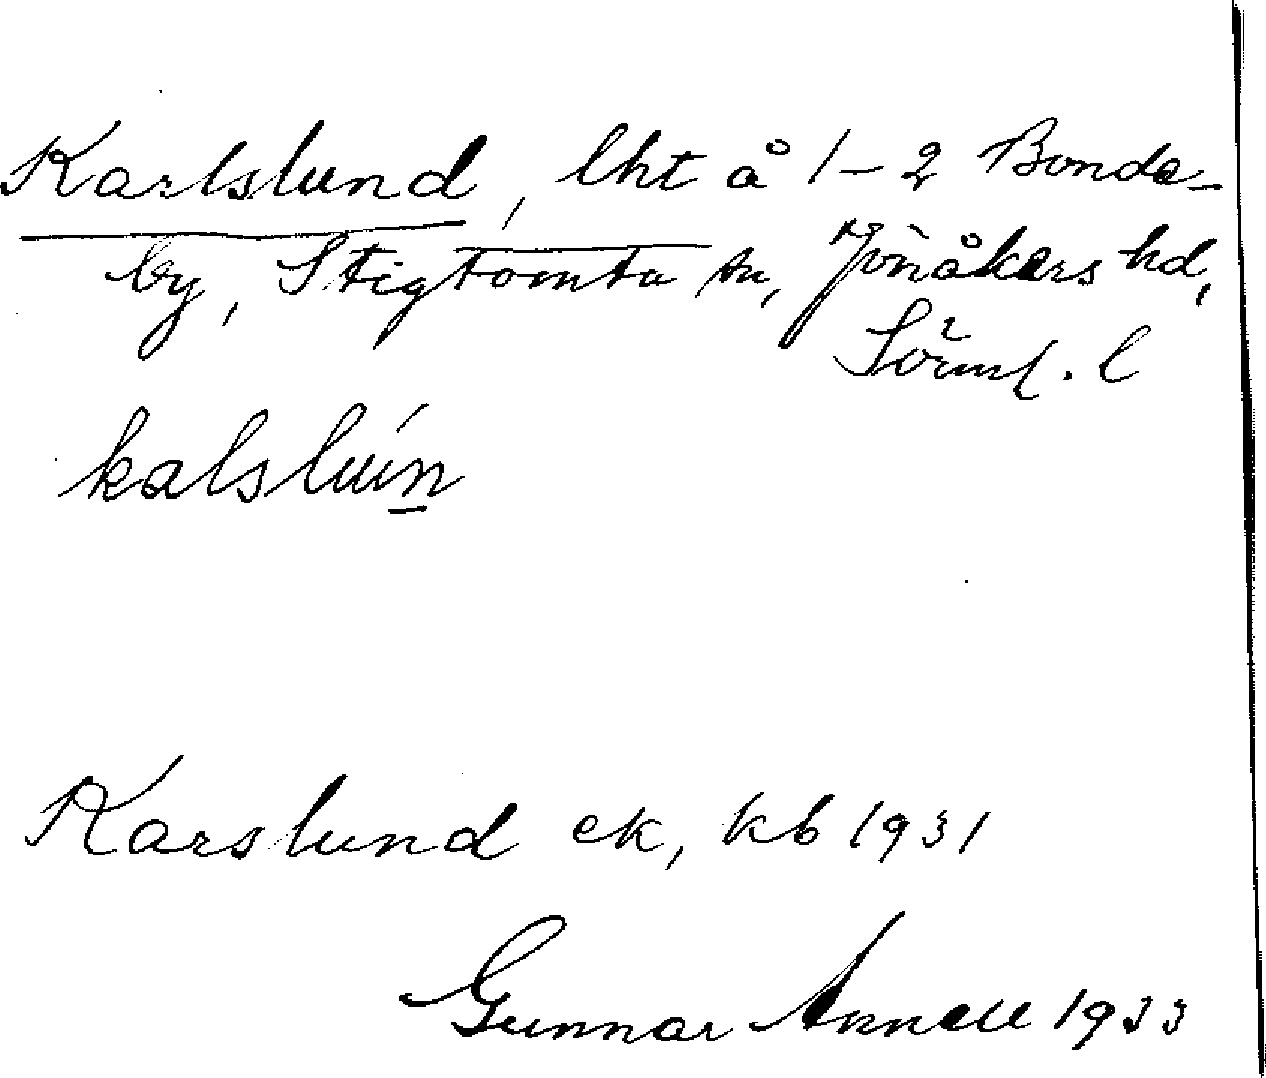 Karlslund, lht å 1-2 Bonde-
by, Stigtomta sn, Jönåkers hd,
Sörml. l
kalslún
Karslund ek, kb 1931
Gunnar Annell 1933